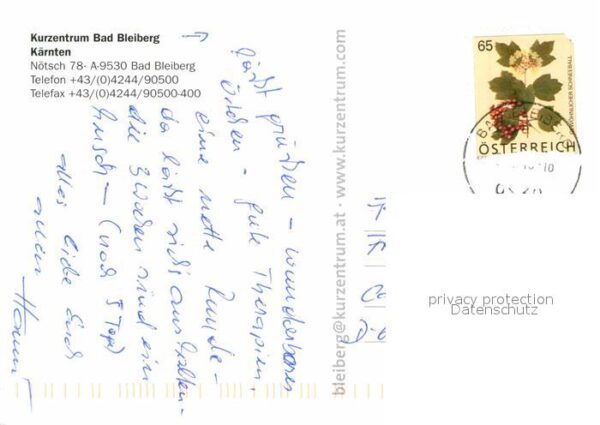 Kurzentrum Bad Bleiberg
Kärnten
Nötsch 78- A-9530 Bad Bleiberg
Telefon +43/(0)4244/90500
Telefax +43/(0)4244/90500-400
läßt grüßen - wunderbarer
- gute Therapien,
eine nette Runde -
da läßt sich's aushalten -
die 3 Wochen sind ein
Husch - (noch 5 Tage)
alles Liebe Euch
allen
bleiberg@kurzentrum.at · www.kurzentrum.com
65
GEWÖHNLICHER SCHNEEBALL
ÖSTERREICH
privacy protection
Datenschutz